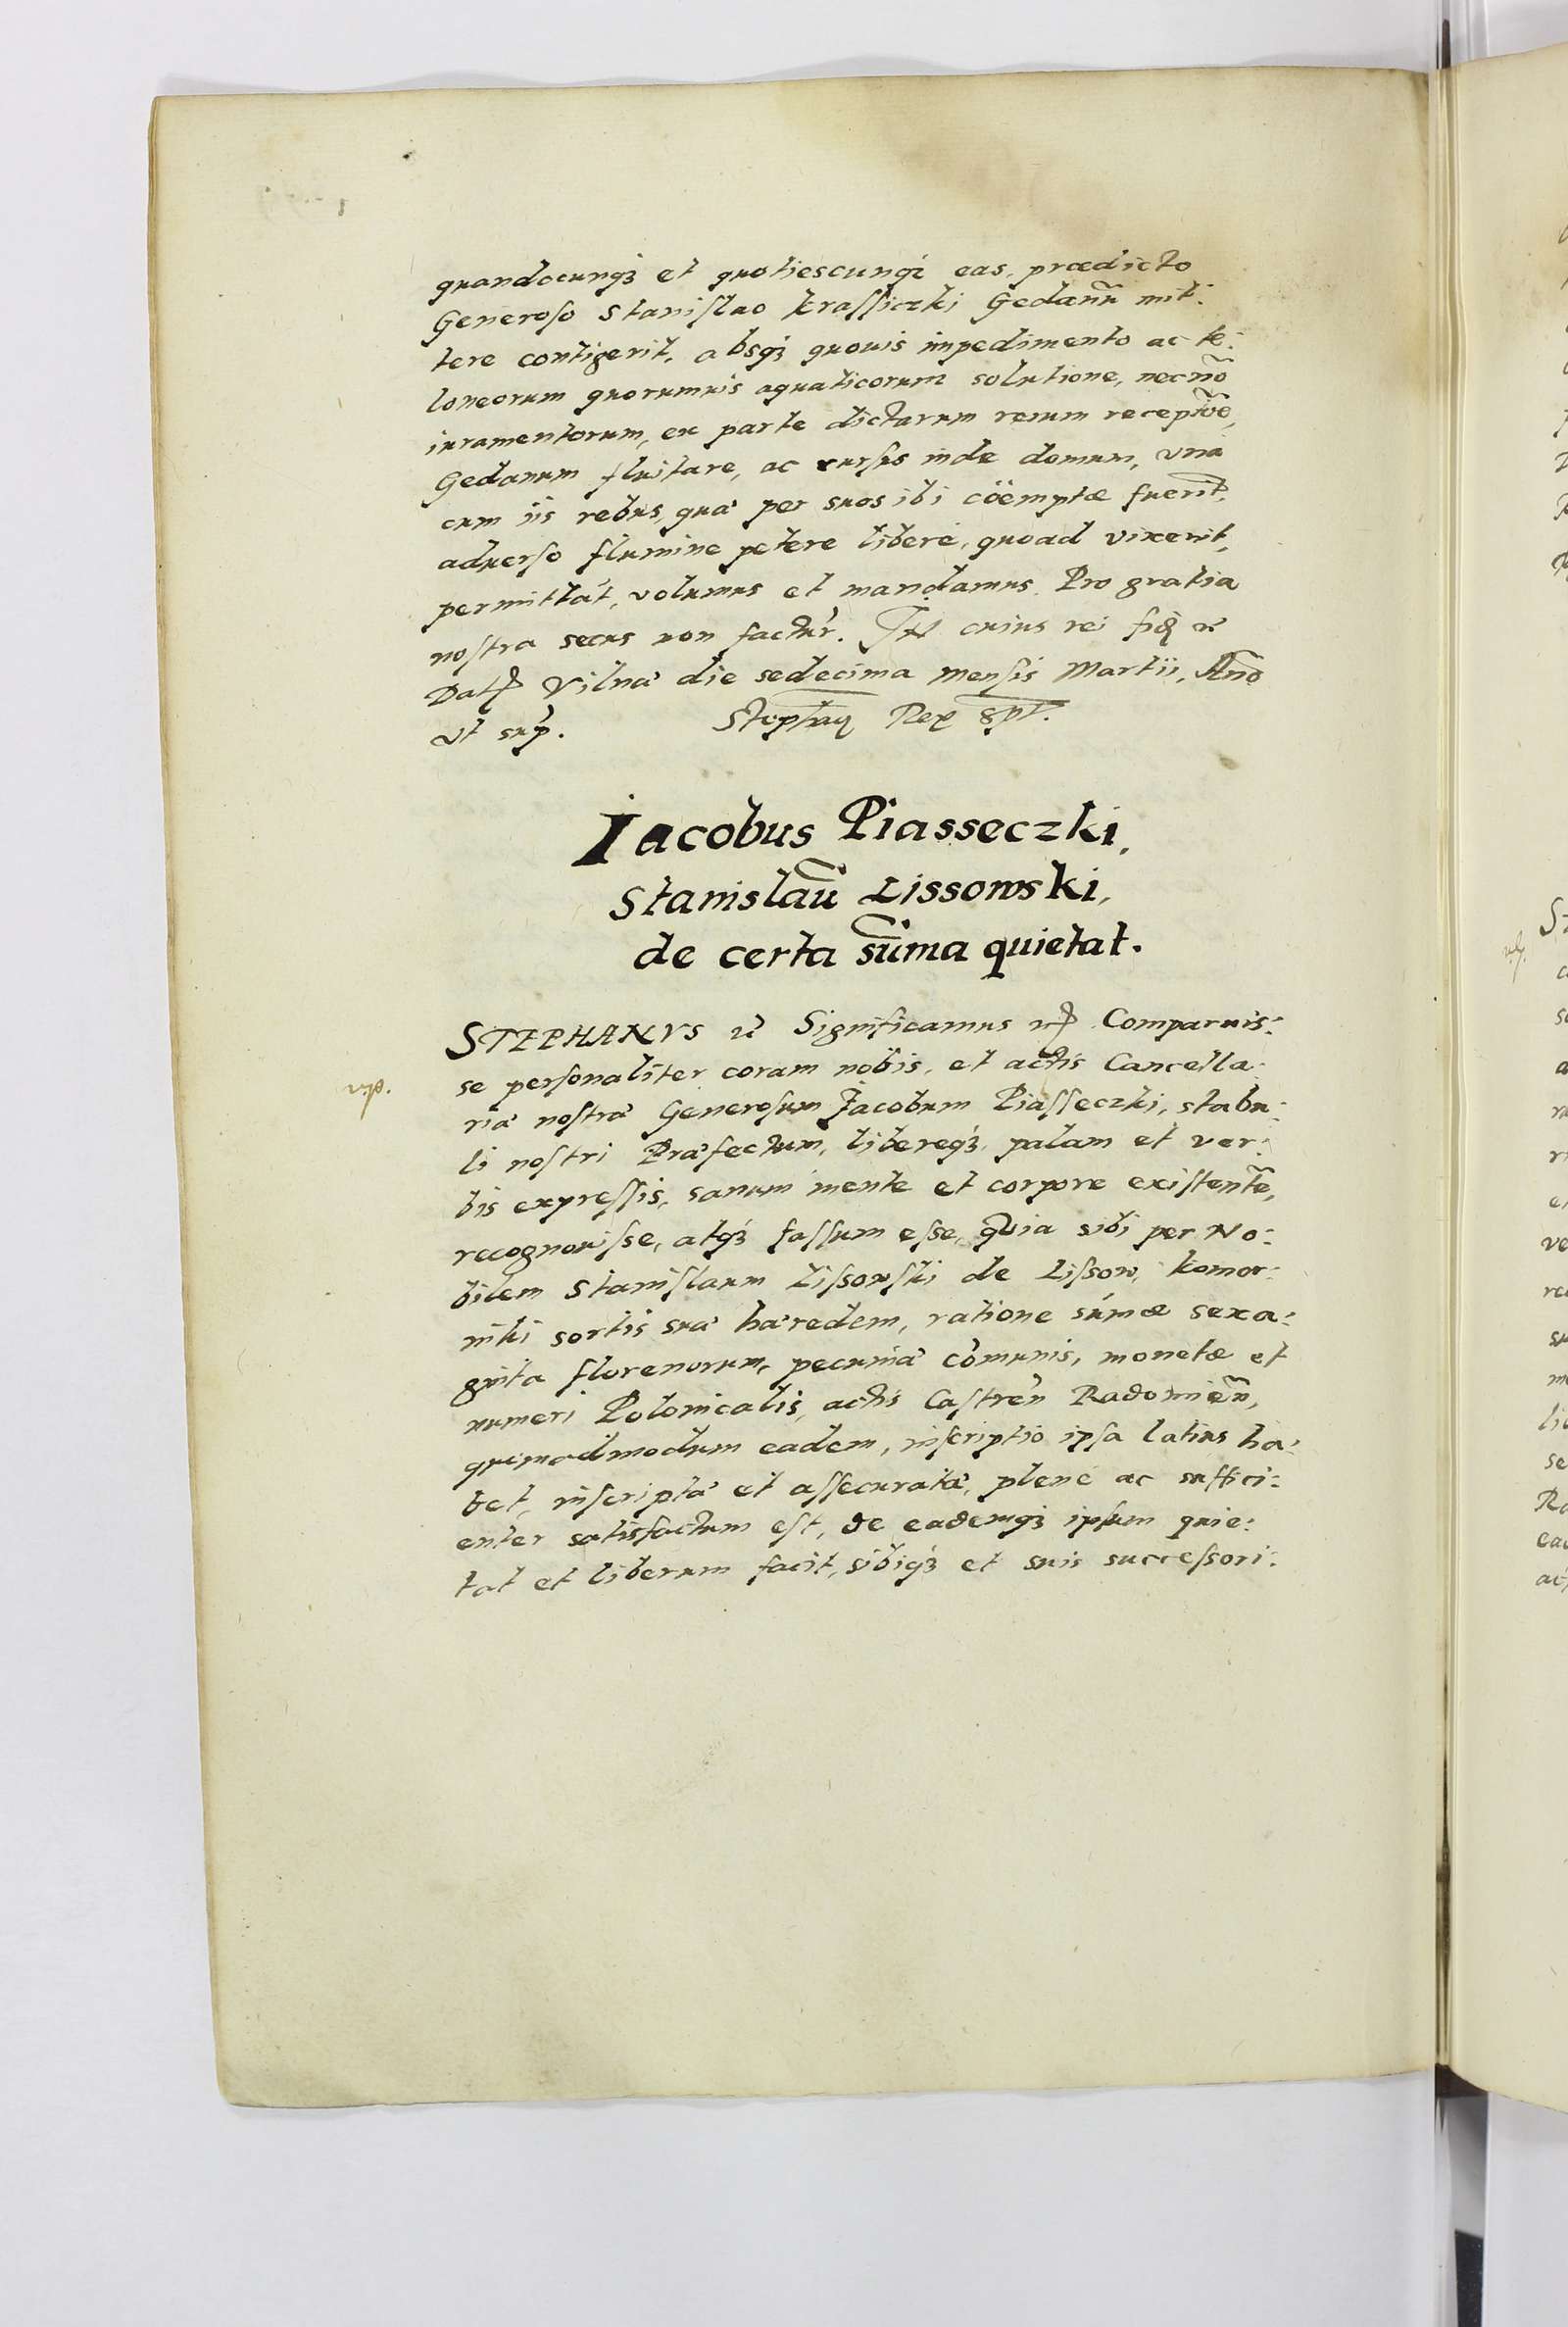 quandocunqȝ et quotiescunqȝ eas, prædicto
Generoso Stanislao Krassiczki Gedanũ mit:
tere contigerit, absqȝ quouis impedimento ac te:
loneorum quorumuis aquaticorum solutione, necnõ
iuramentorum, ex parte dictarum rerum receptõe,
Gedanum fluitare, ac rursus inde domum, vna
cum iis rebus, quæ per suos ibi cöemptæ fuerit,
aduerso flumine petere liberè, quoad vixerit,
permittãt, volumus et mandamus. Pro gratia
nostra secus non factur̃. IN cuius rei fid
Dat Vilnæ die sedecima mensis Martii, Año
vt sup̃. Stephaꝯ Rex sp̃t.
Iacobus Piasseczki,
Stanislaũ Lissowski,
de certa sũma quietat.
STEPHANVS Significamus Comparuis:
se personaliter coram nobis, et actis Cancella:
riæ nostræ Generosum Jacobum Piasseczki, stabu:
li nostri Præfectum, libereqȝ, palam et ver:
bis expressis, sanum mente et corpore existentẽ,
recognouisse, atqȝ fassum esse, quia sibi per No:
bilem Stanislaum Lissowski de Lissow, komor:
niki sortis suæ hæredem, ratione sum̃æ sexa:
ginta florenorum, pecuniæ com̃unis, monetæ et
numeri Polonicalis, actis Castren̄ Radomien̄,
quemadmodum eadem, inscriptio ipsa latius ha:
bet, inscriptæ et assecuratæ, plenè ac suffici:
enter satisfactum est, de eademqȝ ipsum quie:
tat et liberum facit, sibiqȝ et suis successori: